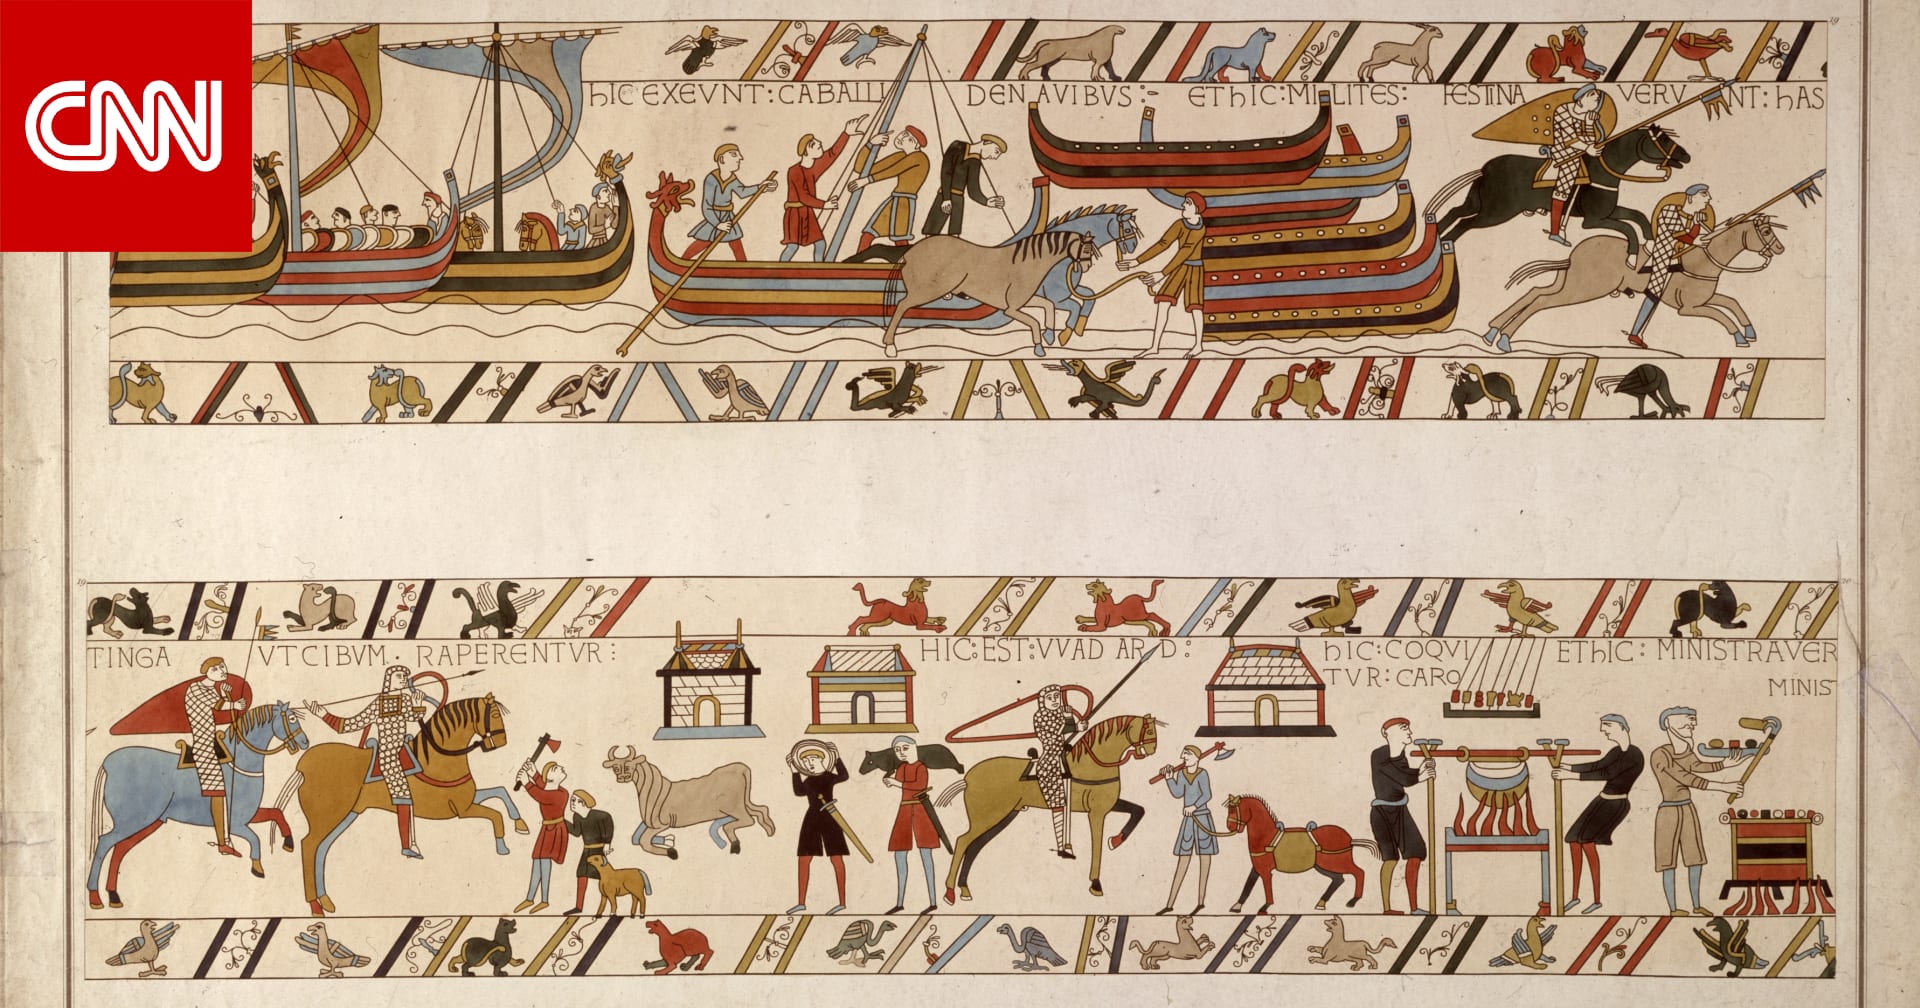 CNN
19
hIC EXEVNT: CABALLI DENAVIBVS:- ET hIC: MILITES: FESTINA VERVNT: hAS
19 20
TINGA VT CIBVM. RAPERENTVR: HIC: EST: VVAD ARD: hIC: COQVI ET hIC: MINISTRAVER
TVR: CARO MINIS